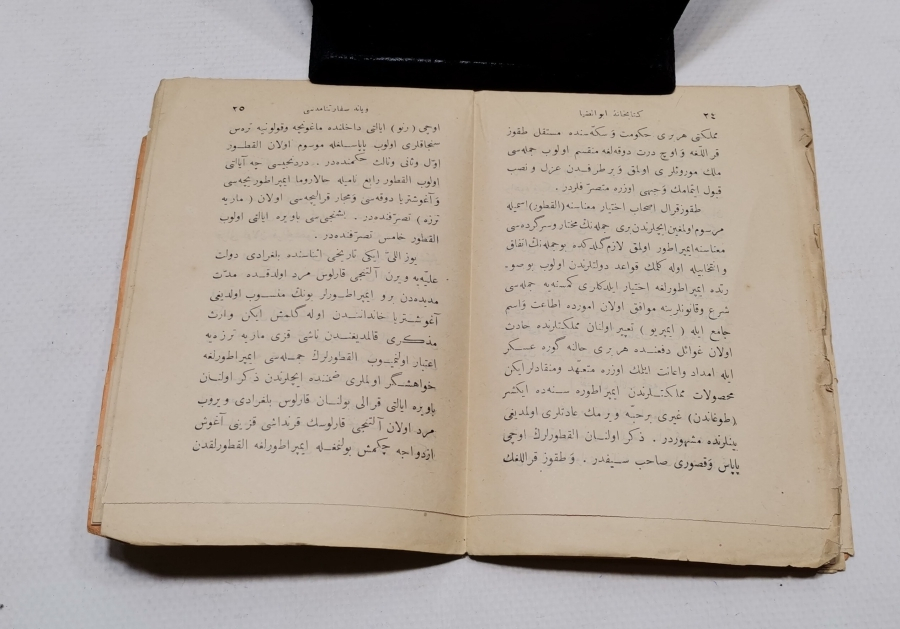 ٣٤
كتابخانهٔ ابوالضيا
مملكتى هر برى حكومت و سكه‌سنده مستقل طقوز
قراللغه و اوچ درت دوقه‌لغه منقسم اولوب جمله‌سى
ملك موروثلرى اولمق و بر طرفدن عزل و نصب
قبول ايتمامك وجهى اوزره متصرفلردر .
طقوزقرال اصحاب اختيار معناسنه (القطور) اسميله
مرسوم اولمغين ايچلرندن برى جمله‌نك مختار و سركرده‌سى
معناسنه ايمپراطور اولمق لازم كلدكده بوجمله‌نك اتفاق
و انتخابيله اوله كلمك قواعد دولتلرندن اولوب بو صو-
رتده ايمپراطورلغه اختيار ايلدكارى كمسنه‌يه جمله‌سى
شرع و قانونلرينه موافق اولان امورده اطاعت و اسم
جامع ايله ( ايمپريو ) تعبير اولنان مملكتلرنده حادث
اولان غوائل دفعنده هر برى حالنه كوره عسكر
ايله امداد و اعانت ايتمك اوزره متعهد و منقادلر ايكن
محصولات مملكتلرندن ايمپراطوره سنه‌ده ايكشر
(طوغاندن) غيرى بر حبه ويرمك عادتلرى اولمديغى
بينلرنده مشهوردر . ذكر اولنان القطورلرك اوچى
پاپاس و قصورى صاحب سيفدر . و طقوز قراللغك
٣٥
ويانه سفارتنامه‌سى
اوجى (رنو) ايالتى داخلنده ماغونچه و قولونيه تره‌س
سنجاقلرى اولوب پاپاسلغله موسوم اولان القطور
اول و ثانى و ثالث حكمنده‌در . دردنجيسى چه آيالتى
اولوب القطور رابع ناميله حالا روما ايمپراطوريچه‌سى
و آغوشتريا دوقه‌سى و مجار قراليچه‌سى اولان ( ماريه
ترزه ) تصرفنده‌در . بشنجى‌سى باويره ايالتى اولوب
القطور خامس تصرفنده‌در .
يوز اللى ايكى تاريخى اثناسنده بلغرادى دولت
عليه‌يه ويرن آلتنجى قارلوس مرد اولدقده مدت
مديده‌دن برو ايمپراطورلر بونك منسوب اولديغى
آغوشتريا خانداننندن اوله كلمش ايكن وارث
مذكرى قالمديغندن ناشى قزى ماريه ترزه‌يه
اعتبار اولنميوب القطورلرك جمله‌سى ايمپراطورلغه
خواهشكر اولملرى ضمننده ايچلرندن ذكر اولنان
باويره ايالتى قرالى بولنان قارلوس بلغرادى ويروب
مرد اولان آلتنجى قارلوسك قرنداشى قزينى آغوش
ازدواجه چكمش بولنمغله ايمپراطورلغه القطورلقدن